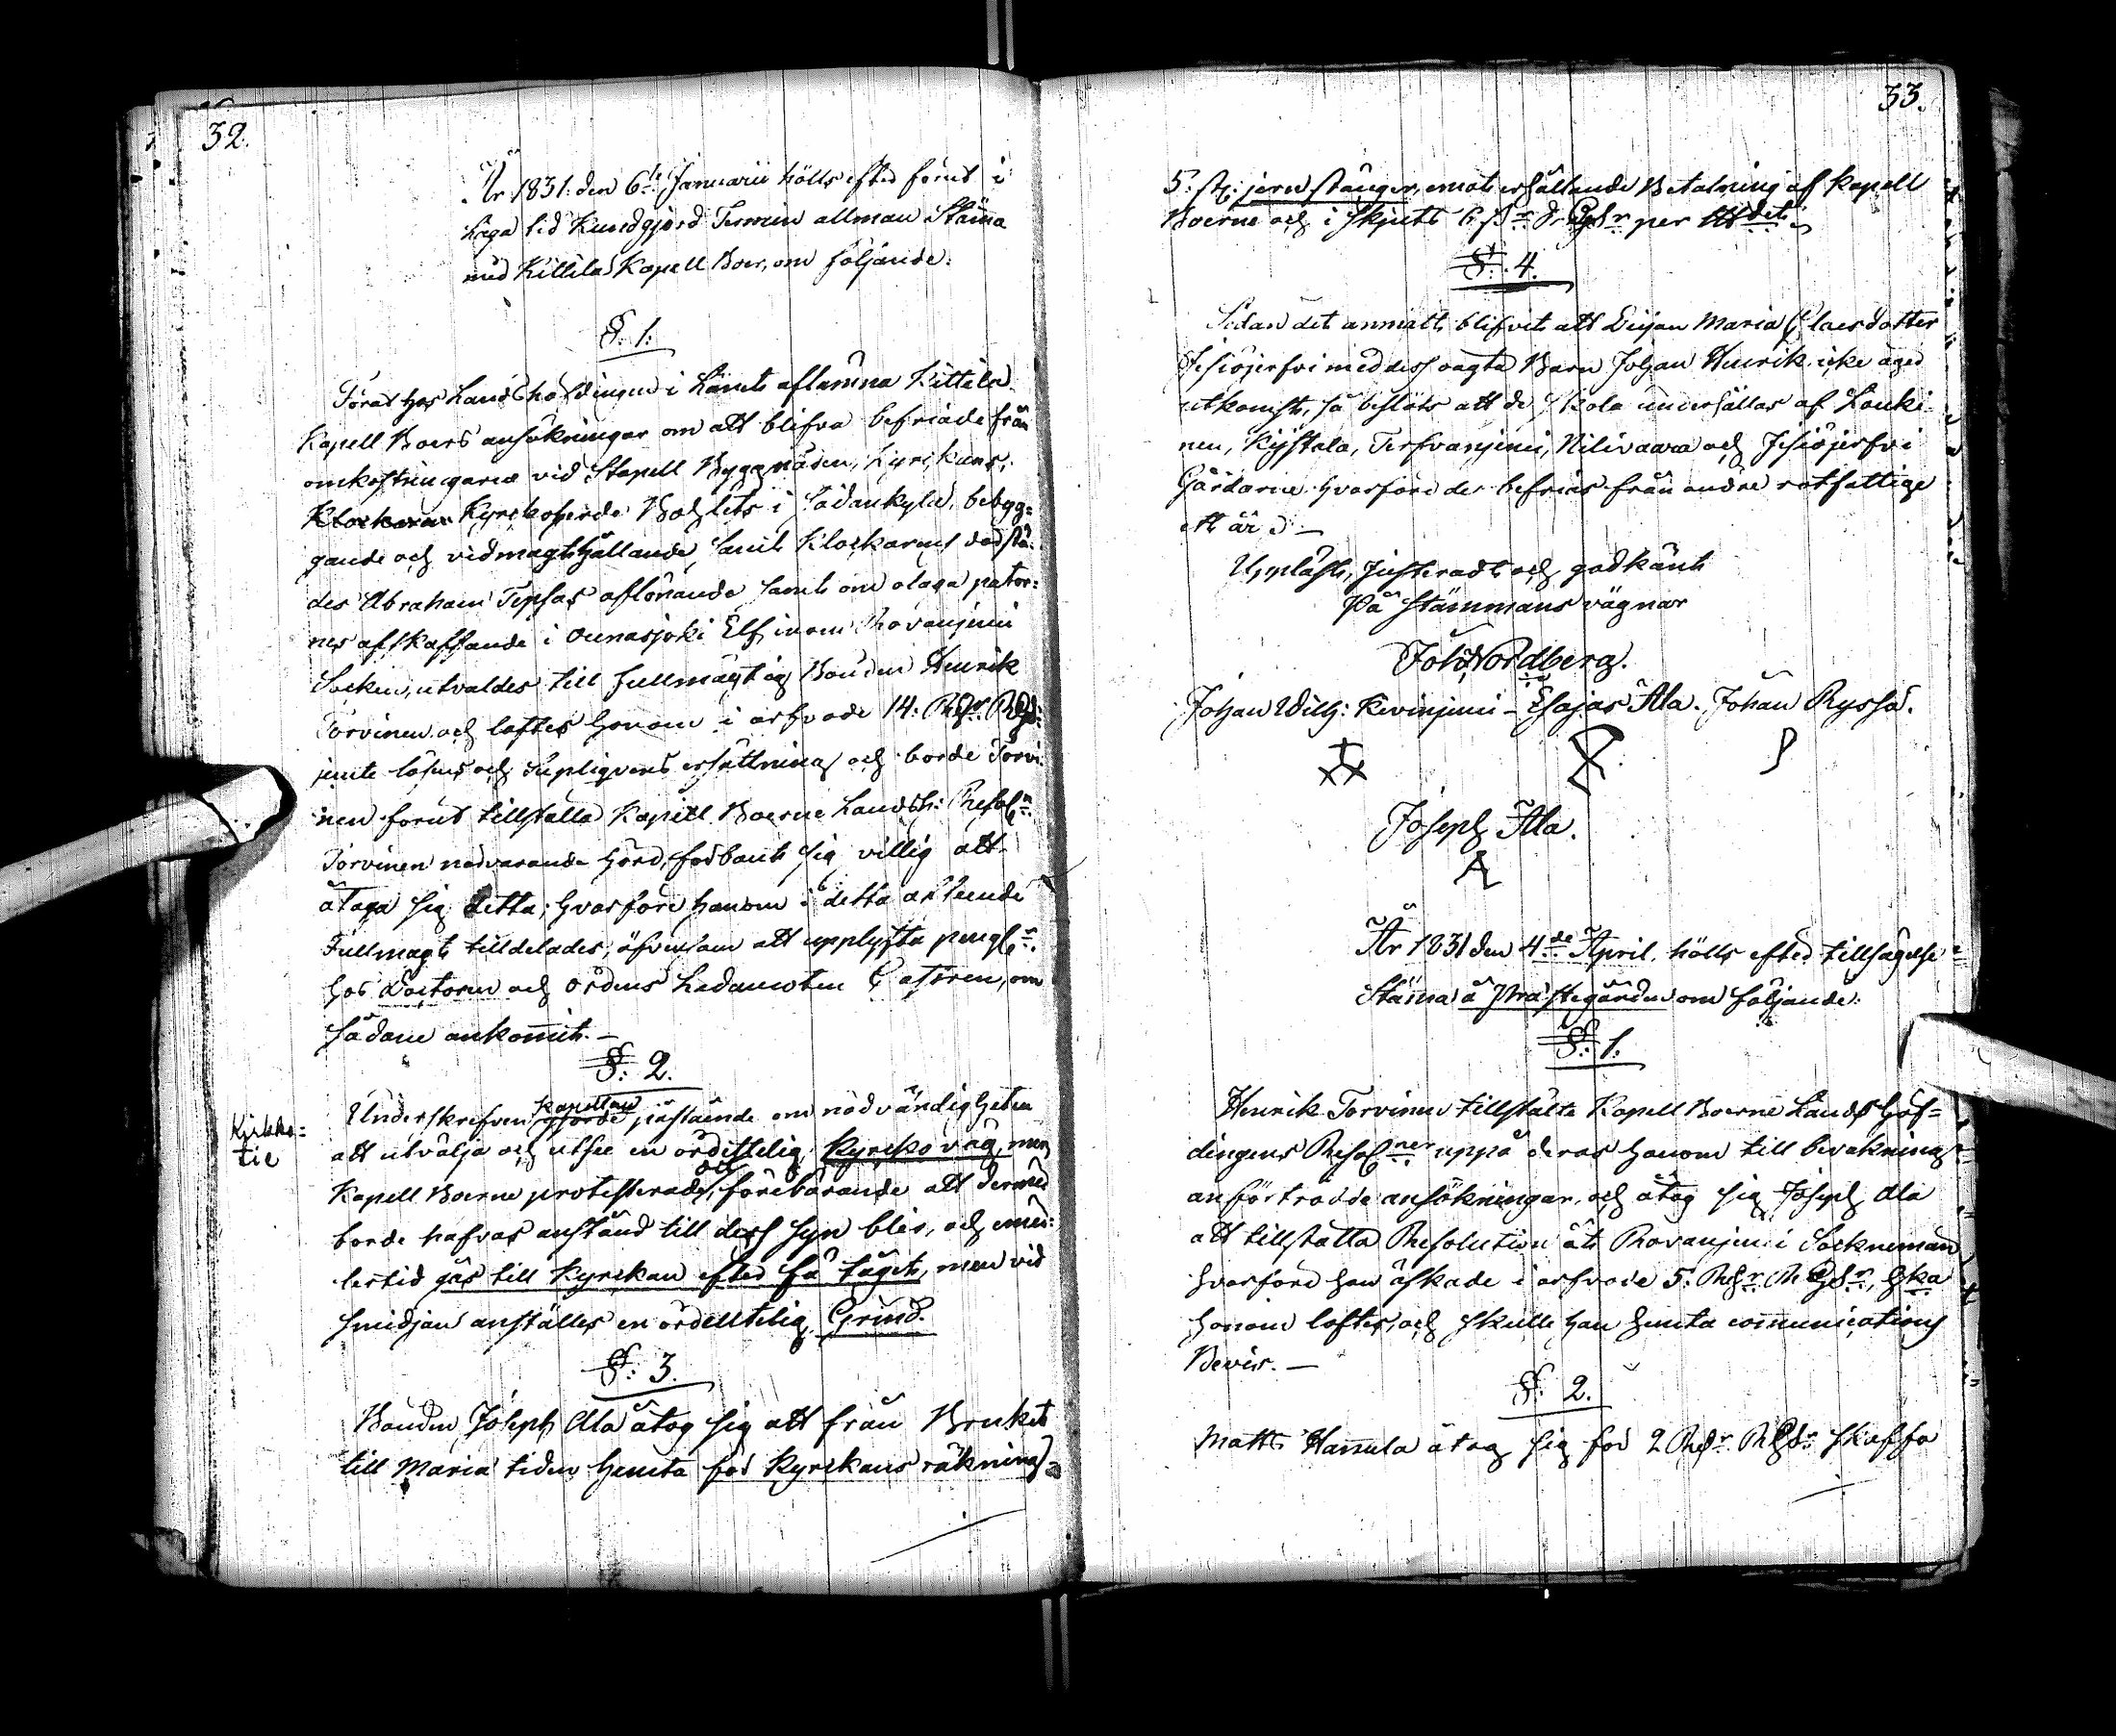 32.
År 1831. den 6te Januarii hölts efter förut i
laga tid Kundgjord Termin allmän Stäm̄a
med Kittilä Kapell Boer, om följande:
§. 1.
Förat hos Landshöfdingen i Länet aflämna Kittilä
Kapell Boers ansökningar om att blifva befriade från
omkostningarne vid Kapell Byggnaden, Kyrkans,
Kyrkoherde Bohlets i Sodankylä, bebygg=
gande och vidmagthållande, samt Klockarens
des Abraham Tepsas aflönande samt om olaga pator=
nes afskaffande i Ounasjoki Elf inom Rovanjemi
Socken, utvaldes till fullmägtig Bonden Henrik
Torvinen och loftes honom i arfvode 14. Rdr Rgs:
jemte lösens och Supliqvens ersättning och borde Torvi
nen förut tillställa Kapell Boerne Landsh: Resol:n
Torvinen närvarande hörd, förbant sig villig att
åtaga sig detta; hvarföre honom i detta afseende
Fullmagt tilldelades, äfvensom att upplyfta
hos Doctorn och Ordens Ledamoten Castren, om
sådane ankom̄it. —
§. 2.
Kirkko=
tie
Underskrifven kapellan gjorde påstående om nödvändigheten
att utvälja och utse en ordentelig Kyrkoväg, men
Kapell Boerne protesterade, och förebärande att dermed
borde hafvas anstånd till dess syn blir, och emed=
lertid gås till Kyrkan efter få tåget, men vid
smidjan anställes en ordentelig Grind.
§. 3.
Bonden Joseph Ala åtog sig att från Bruket
till Maria tiden hemta för Kyrkans räkning
33.
5. st. jern stänger, emot erhållande Betalning af Kapell
Boerne och i skjuts 6 sr. Rgs:r per
§. 4.
Sedan det anmält blifvit att Enjan Maria Claesdotter
Jesiöjerfvi med des oägta Barn Johan Henrik icke äger
utkomst, så beslöts att de skola underhållas af Louki
nen, Kystala, Terfvanjemi, Nilivaara och Jesiöjerfvi
Gårdarne hvarföre de befrias från andre rotfattige
ett år. —
Uppläst, Justeradt och godkänt
På Stämmans vägnar
Joh: Nordberg.
Johan Wilh: Kevinjemi – Esajas Ala. Johan Ryssä.
Joseph Ala.
År 1831 den 4de April. hölts efter tillsägelse
Stäm̄a å Prästegården om följande:
§. 1.
Henrik Torvinen tillstälte Kapell Boerne Landshöf=
dingens Resol:ner uppå deras honom till bevakning
anförtrodde ansökningar, och åtog sig Joseph Ala
att tillställa Resolution åt Rovanjemi Socknemän
hvarföre han äskade i arfvode 5. Rdr Rgs:r, hka
honom loftes, och skulle han hemta communications
Bevis. —
§. 2.
Matts Ham̄ula åtog sig för 2 Rdr Rgs:r skaffa